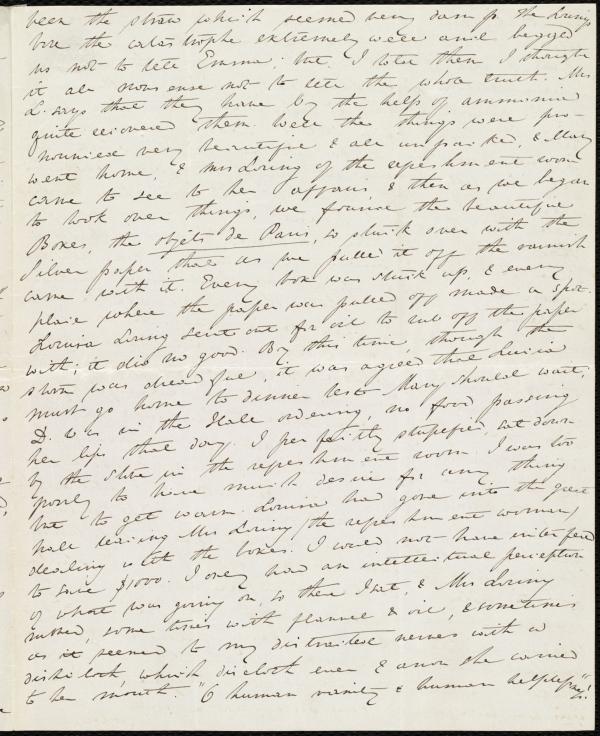 been the straw which seemed very damp. The Lorings
bore the catastrophe extremely well and begged
us not to tell Emma; but I told them I thought
it all nonsense not to tell the whole truth. Mrs
L. says that they have by the help of ammonia
quite recovered them. Well the things were pro-
nounced very beautiful & all unpacked, & Mary
went home, & Mrs Loring of the refreshment room
came to see to her affairs & then as we began
to look over things, we found the beautiful
Boxes, the objets de Paris, so stuck over with the
Silver paper that as we pulled it off the varnish
came with it. Every box was stuck up, & every
place where the paper was pulled off made a spot.
Louisa Loring sent out for oil to rub off the paper
with; it did no good. By this time, though the
storm was dreadful, it was agreed that Louisa
must go home to dinner lest Mary should wait;
D. was in the Hall ordering, no food passing
her lips that day. I perfectly stupefied, sat down
by the stove in the refreshment room. I was too
poorly to have much desire for any thing
but to get warm. Louisa had gone into the great
hall leaving Mrs Loring (the refreshment woman)
dealing with the boxes. I would not have interfered
to save $1000. I only had an intellectual perception
of what was going on, so there I sat, & Mrs Loring
rubbed, some times with flannel & oil, & sometimes
as it seemed to my distracted nerves with a
dishcloth, which discloth ever & anon she carried
to her mouth. "O human vanity & human helplessness"!